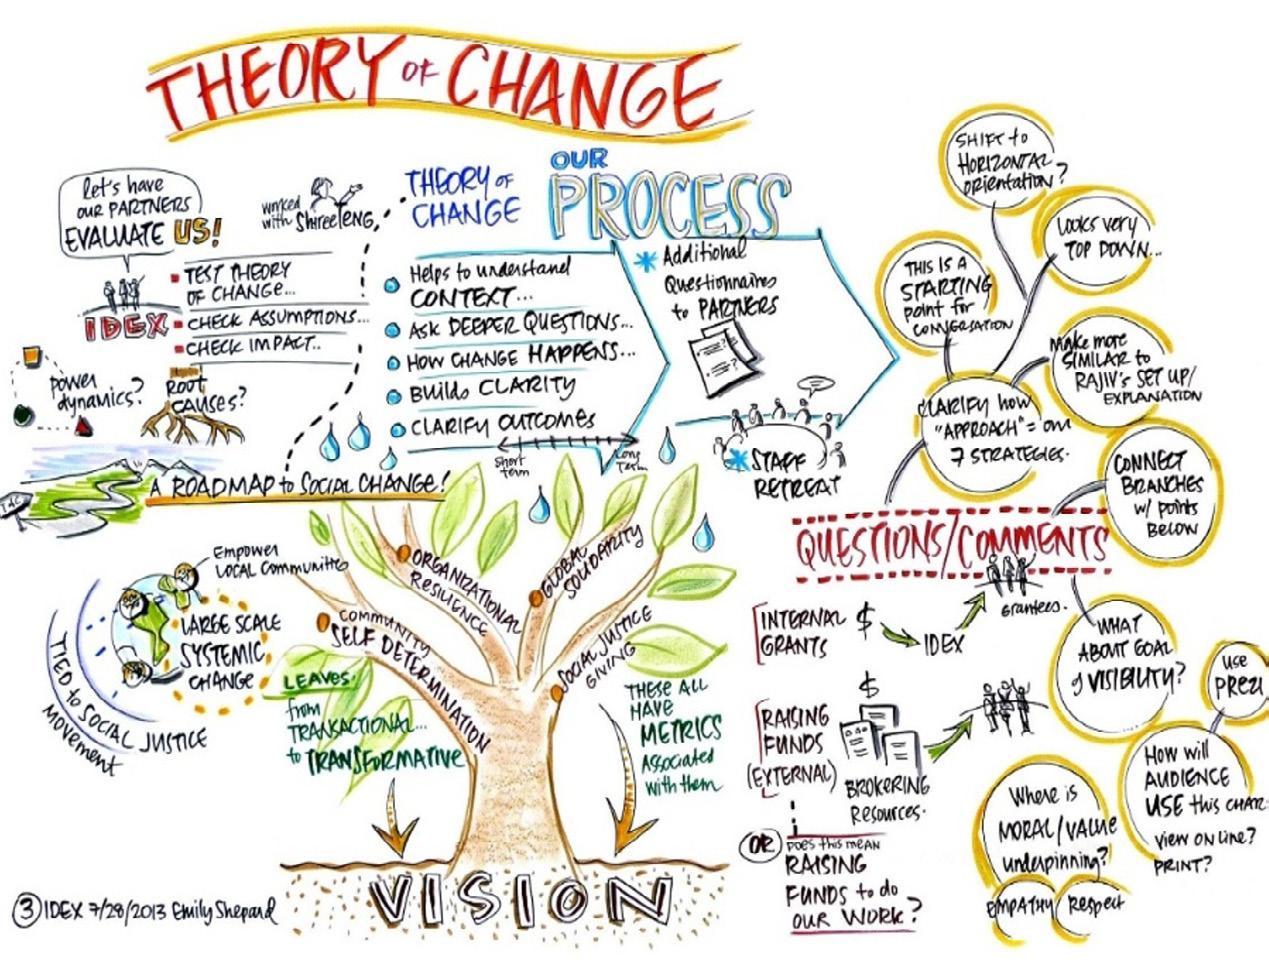 THEORY OF CHANGE
Let's have
our PARTNERS
EVALUATE US!
IDEX
TEST THEORY
OF CHANGE...
CHECK ASSUMPTIONS...
CHECK IMPACT..
worked
with Shiree Teng
Power
dynamics?
ROOT
CAUSES?
A ROADMAP to SOCIAL CHANGE!
THEORY OF
CHANGE
OUR
PROCESS
Helps to understand
CONTEXT...
ASK DEEPER QUESTIONS...
HOW CHANGE HAPPENS...
Builds CLARITY
CLARIFY OUTCOMES
Short
term
Long
Term
Additional
Questionnaires
to PARTNERS
STAFF
RETREAT
SHIFT to
HORIZONTAL
orientation?
LOOKS VERY
TOP DOWN...
THIS IS A
STARTING
point for
CONVERSATION
Make more
SIMILAR to
RAJIV's SET UP/
EXPLANATION
CLARIFY how
"APPROACH" = our
7 STRATEGIES.
CONNECT
BRANCHES
w/ points
BELOW
QUESTIONS/COMMENTS
Empower
LOCAL Communities
LARGE SCALE
SYSTEMIC
CHANGE
TIED to SOCIAL JUSTICE
MOVEMENT
COMMUNITY
SELF DETERMINATION
ORGANIZATIONAL
RESILIENCE
GLOBAL
SOLIDARITY
SOCIAL JUSTICE
GIVING
LEAVES:
from
TRANSACTIONAL...
to TRANSFORMATIVE
THESE ALL
HAVE
METRICS
Associated
with them
VISION
INTERNAL
GRANTS
$
IDEX
Grantees.
RAISING
FUNDS
(EXTERNAL)
$
BROKERING
Resources.
OR
Does this mean
RAISING
FUNDS to do
OUR WORK?
WHAT
ABOUT GOAL
of VISIBILITY?
use
PREZI
How will
AUDIENCE
USE this CHART
View on line?
PRINT?
Where is
MORAL/VALUE
underpinning?
EMPATHY
Respect
3 IDEX 7/28/2013 Emily Shepard